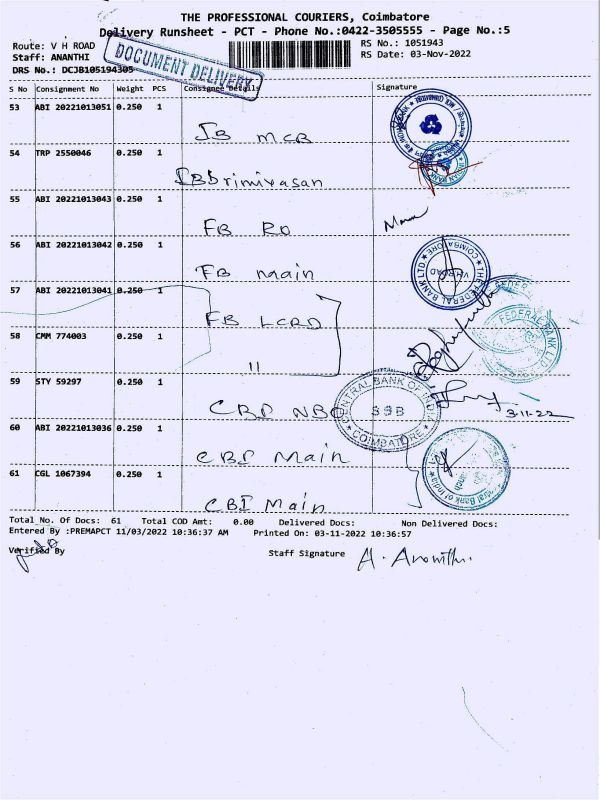 THE PROFESSIONAL COURIERS, Coimbatore
Delivery Runsheet - PCT - Phone No.:0422-3505555 - Page No.:5
Route: V H ROAD
Staff: ANANTHI
DRS No.: DCJB105194305
DOCUMENT DELIVERY
RS No.: 1051943
RS Date: 03-Nov-2022
S No Consignment No Weight PCS Consignee Details Signature
53 ABI 20221013051 0.250 1
IB MCB
54 TRP 2550046 0.250 1
IB Srinivasan
55 ABI 20221013043 0.250 1
FB RO
56 ABI 20221013042 0.250 1
FB Main
THE FEDERAL BANK LTD COIMBATORE
V.H.ROAD
57 ABI 20221013041 0.250 1
FB LCRD
FEDERAL BANK LTD
58 CMM 774003 0.250 1
11
59 STY 59297 0.250 1
CBI NBO
CENTRAL BANK OF INDIA
SSB
COIMBATORE
3-11-22
60 ABI 20221013036 0.250 1
CBI Main
61 CGL 1067394 0.250 1
CBI Main
Central Bank of India
Total No. Of Docs: 61 Total COD Amt: 0.00 Delivered Docs: Non Delivered Docs:
Entered By :PREMAPCT 11/03/2022 10:36:37 AM Printed On: 03-11-2022 10:36:57
Verified By Staff Signature A. Ananthi.